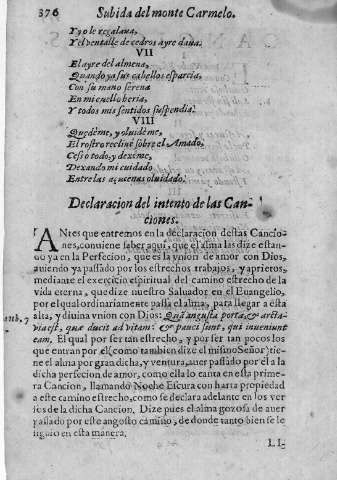 376 Subida del monte Carmelo.
Y yo le regalaua,
Y el ventalle de cedros ayre daua.
VII
El ayre del almena,
Quando ya sus cabellos esparcia,
Con su mano serena
En mi cuello heria,
Y todos mis sentidos suspendia.
VIII
Quedème, y oluidème,
El rostro recliné sobre el Amado,
Cessò todo, y dexème,
Dexando mi cuidado
Entre las açucenas oluidado.
Declaracion del intento de las Can-
ciones.
ANtes que entremos en la declaracion destas Cancio-
nes, conuiene saber aqui, que el alma las dize estan-
do ya en la Perfecion, que es la vnion de amor con Dios,
auiendo ya passado por los estrechos trabajos, y aprietos,
mediante el exercicio espiritual del camino estrecho de la
vida eterna, que dize nuestro Saluador en el Euangelio,
por el qual ordinariamente passa el alma, para llegar a esta
alta, y diuina vnion con Dios: Quã angusta porta, & arcta
via est, quæ ducit ad vitam: & pauci sunt, qui inueniunt
eam. El qual por ser tan estrecho, y por ser tan pocos los
que entran por el (como tambien dize el mismo Señor) tie-
ne el alma por gran dicha, y ventura, auer passado por èl a la
dicha perfecion de amor, como ella lo canta en esta prime-
ra Cancion, llamando Noche Escura con harta propiedad
a este camino estrecho, como se declara adelante en los ver
sos de la dicha Cancion. Dize pues el alma gozosa de auer
passado por este angosto camino, de donde tanto bien se le
siguio en esta manera.
LI-